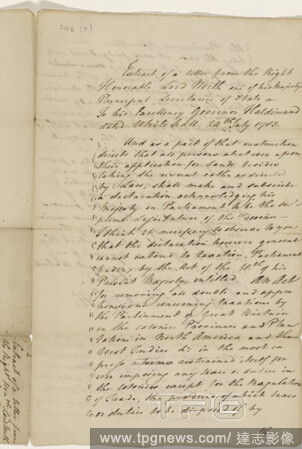 Extract of a letter from the Right
Honorable Lord North one of his Majesty's
Principal Secretaries of State
To his Excellency Governor Haldimand
dated Whitehall 24th July 1783.
And as a part of that instruction
directs that all persons what ever upon
their application for lands besides
taking the usual oaths as directed
by Law, shall make and subscribe
a declaration acknowledging his
Majesty in Parliament to be the su
preme Legislature of the
I think it necessary to observe to you
that the declaration however general
cannot extend to taxation, Parliament
having by the Act of the 18th of his
Present Majesty entitled An Act
for removing all doubts and appre
hensions concerning taxations by
the Parliament of Great Britain
in the colonies Provinces and Plan
tations in North America and the
West Indies in the most ex
press terms restrained itself for
ever imposing any taxes or duties in
the colonies except for the Regulation
of Trade, the produce of which taxes
or duties to be disposed of by
Extract of a letter from
the Right Honble Lord North
TPG
www.tpgnews.com / 達志影像